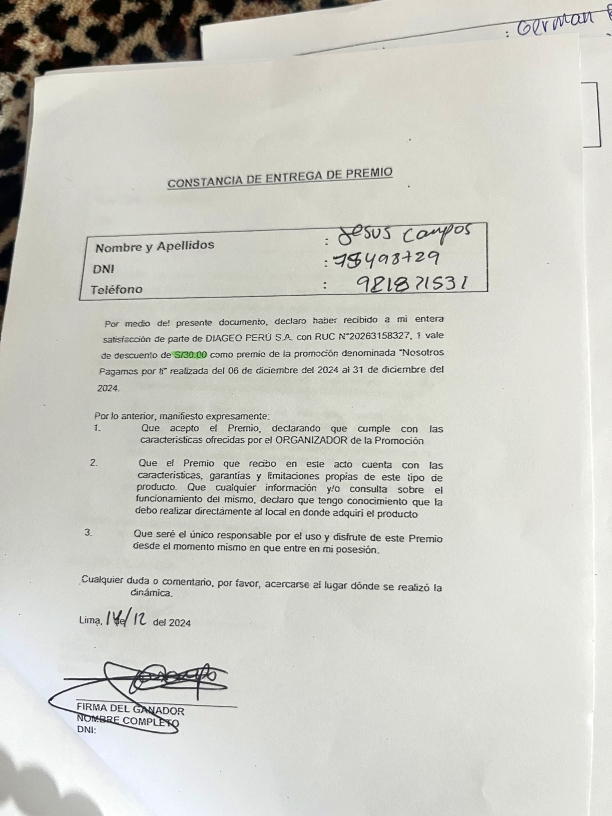 : German
CONSTANCIA DE ENTREGA DE PREMIO
Nombre y Apellidos : Jesus Campos
DNI : 75498729
Teléfono : 981871531
Por medio del presente documento, declaro haber recibido a mi entera
satisfacción de parte de DIAGEO PERÚ S.A. con RUC N°20263158327, 1 vale
de descuento de S/30.00 como premio de la promoción denominada "Nosotros
Pagamos por ti" realizada del 06 de diciembre del 2024 al 31 de diciembre del
2024.
Por lo anterior, manifiesto expresamente:
1. Que acepto el Premio, declarando que cumple con las
características ofrecidas por el ORGANIZADOR de la Promoción
2. Que el Premio que recibo en este acto cuenta con las
características, garantías y limitaciones propias de este tipo de
producto. Que cualquier información y/o consulta sobre el
funcionamiento del mismo, declaro que tengo conocimiento que la
debo realizar directamente al local en donde adquirí el producto
3. Que seré el único responsable por el uso y disfrute de este Premio
desde el momento mismo en que entre en mi posesión.
Cualquier duda o comentario, por favor, acercarse al lugar dónde se realizó la
dinámica.
Lima, 14/12 del 2024
FIRMA DEL GANADOR
NOMBRE COMPLETO
DNI: